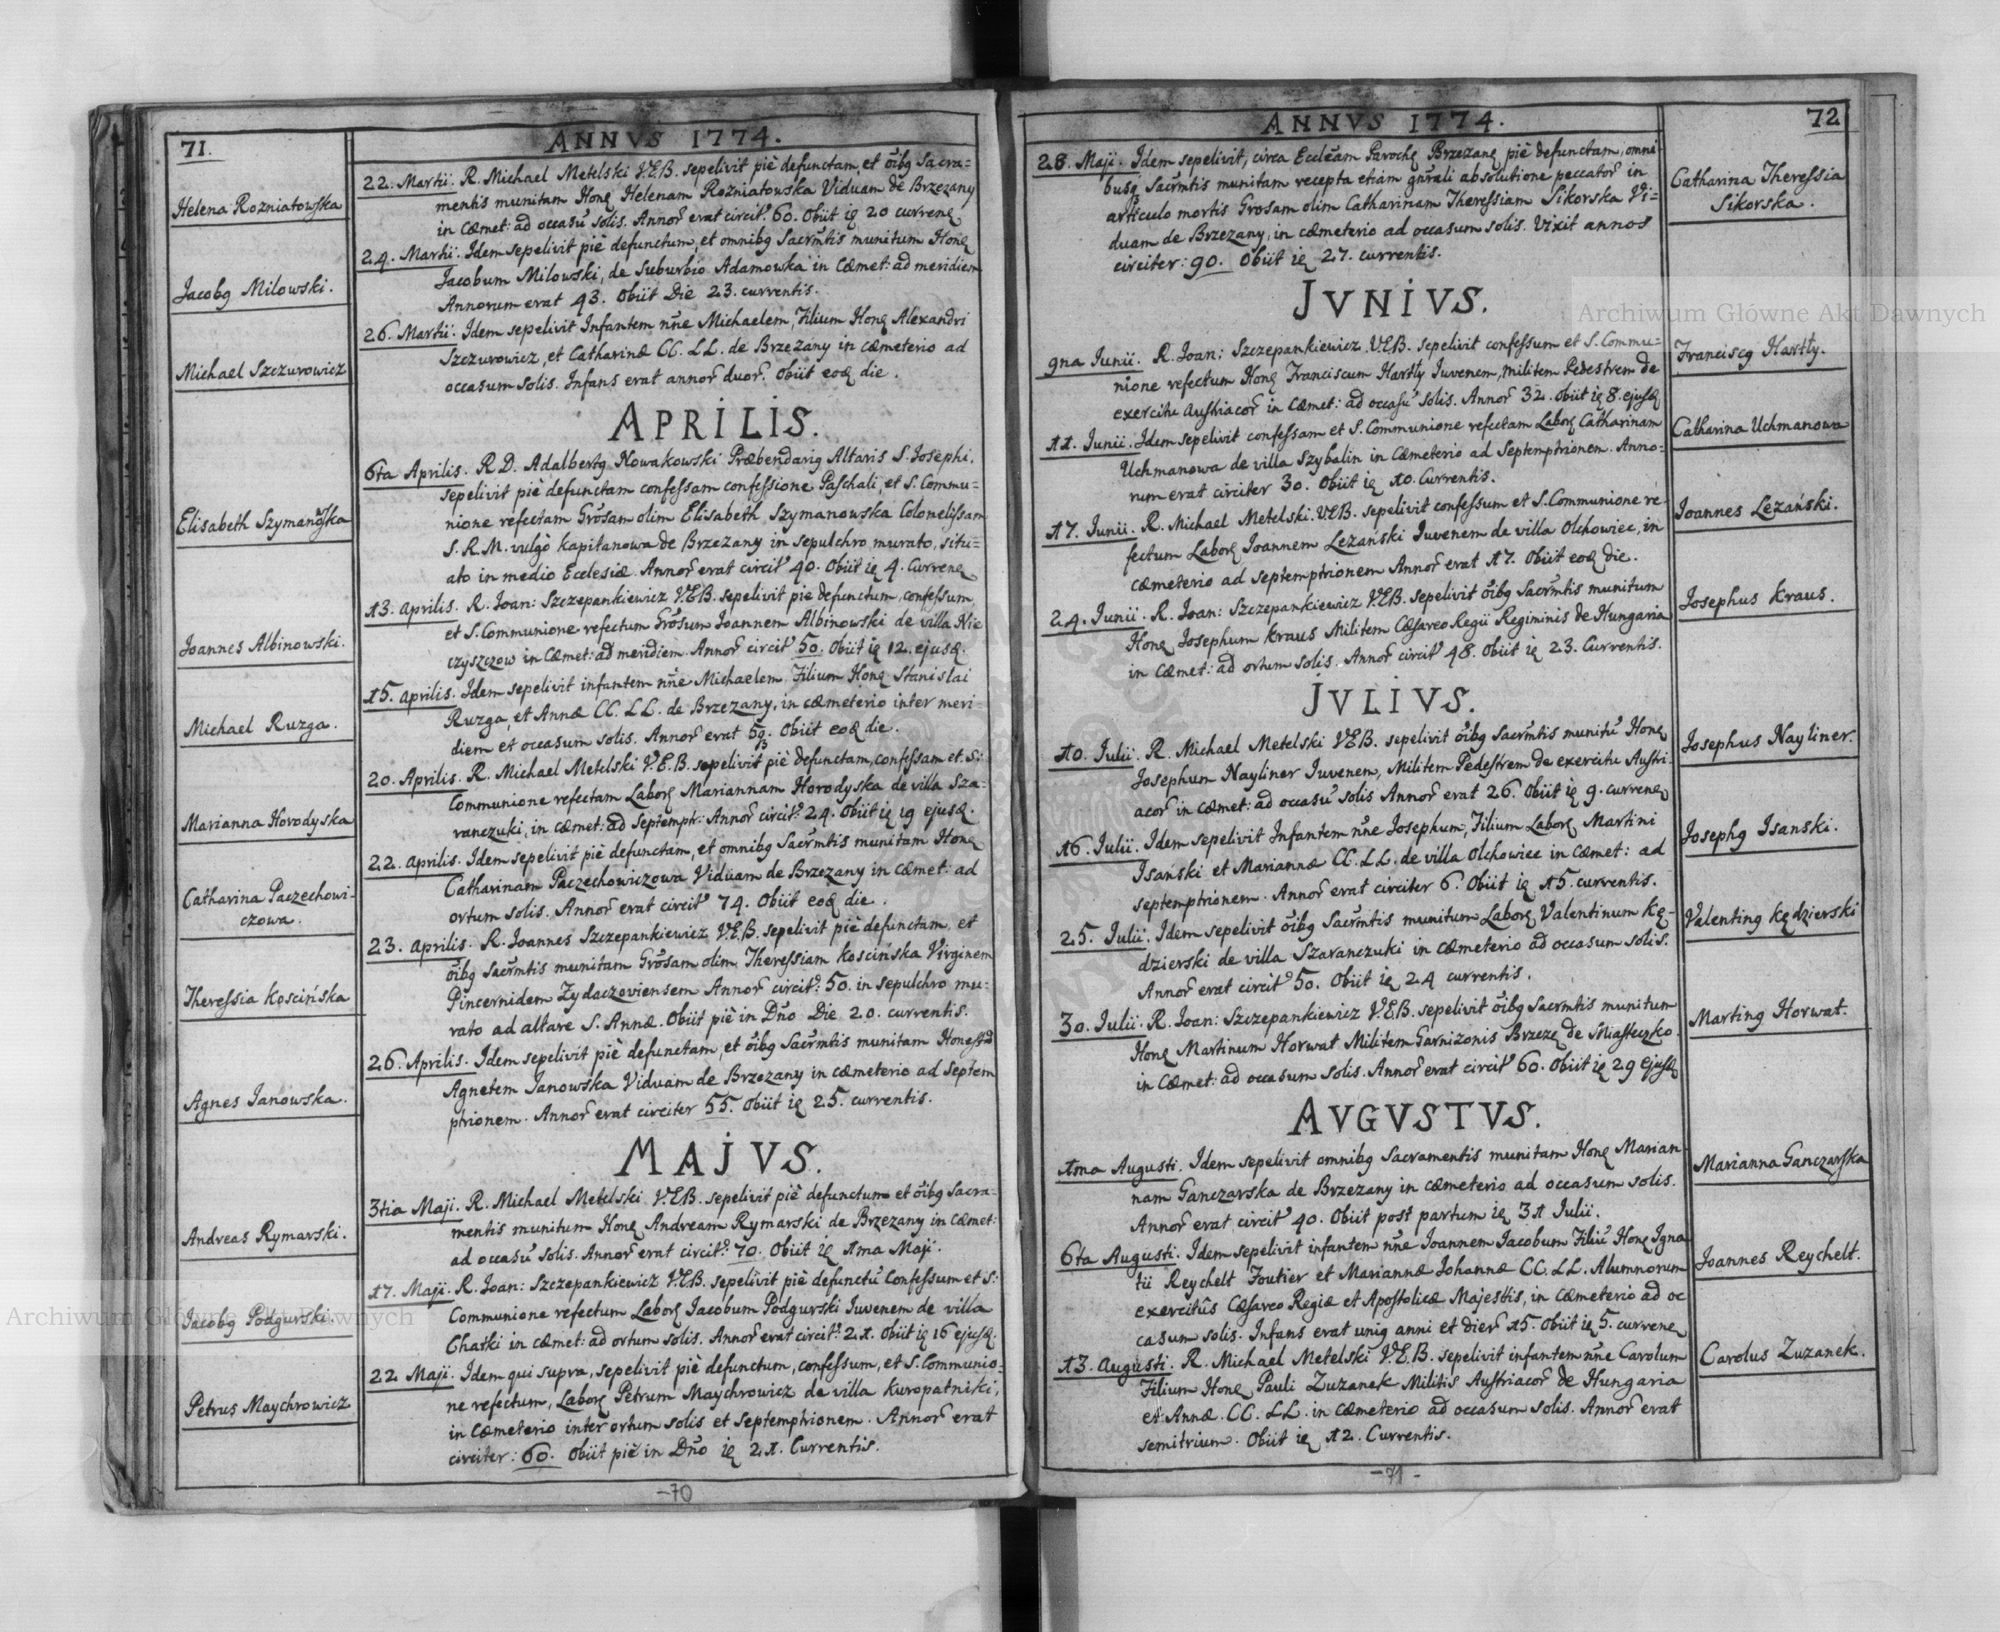 71.
ANNVS 1774.
Helena Rozniatowska
22. Martii. R. Michael Metelski V.E.B. sepelivit piè defunctam, et õibg Sacra=
mentis munitam Honę Helenam Rozniatowska Viduam de Brzezany
in Cæmet: ad occasũ solis. Annor̃ erat circit? 60. Obiit ię 20 currenę
Jacobg Milowski.
24. Martii. Idem sepelivit piè defunctum, et omnibg Sacrm̃tis munitum Honę
Jacobum Milowski, de Suburbio Adamowka in Cæmet: ad meridiem
Annorum erat 43. Obiit Die 23. currentis.
Michael Szczurowicz
26. Martii. Idem sepelivit Infantem nñe Michaelem, Filium Honę Alexandri
Szczurowicz, et Catharinæ CC. LL. de Brzezany in cæmeterio ad
occasum solis. Infans erat annor̃ duor̃. Obiit eoę die.
APRILIS.
Elisabeth Szymanowska
6ta Aprilis. R D. Adalbertg Nowakowski Præbendarig Altaris S. Josephi.
sepelivit piè defunctam confessam confessione Paschali, et S. Commu=
nione refectam Grõsam olim Elisabeth Szymanowska Colonelissam
S. R. M. vulgò Kapitanowa de Brzezany in sepulchro murato, situ=
ato in medio Ecclesiæ. Annor̃ erat circit? 40. Obiit ię 4. Currenę
Joannes Albinowski.
13. Aprilis. R. Joan: Szczepankiewicz V.E.B. sepelivit piè defunctum, confessum
et S. Communione refectum Grõsum Joannem Albinowski de villa Nie
czyszczow in Cæmet: ad meridiem Annor̃ circit? 50. Obiit ię 12. ejusę.
Michael Ruzga.
15. Aprilis. Idem sepelivit infantem nñe Michaelem, Filium Honę Stanislai
Ruzga, et Annæ CC. LL. de Brzezany, in cæmeterio inter meri=
diem et occasum solis. Annor̃ erat 5. Obiit eoę die.
Marianna Horodyska
20. Aprilis. R. Michael Metelski V.E.B. sepelivit piè defunctam, confessam et S:
Communione refectam Laborę Mariannam Horodyska de villa Sza=
ranczuki, in cæmet: ad Septemptr: Annor̃ circit? 24. Obiit ię 19 ejusę.
Catharina Paczechowi-
czowa.
22. Aprilis. Idem sepelivit piè defunctam, et omnibg Sacrm̃tis munitam Honę
Catharinam Paczechowiczowa Viduam de Brzezany in cæmet: ad
ortum solis. Annor̃ erat circit? 74. Obiit eoę die.
Theressia Koscińska
23. Aprilis. R. Joannes Szczepankiewicz V.E.B. sepelivit piè defunctam, et
õibg Sacrm̃tis munitam Grõsam olim Theressiam Koscińska Virginem
Pincernidem Zydaczoviensem Annor̃ circit? 50. in sepulchro mu=
rato ad altare S. Annæ. Obiit piè in Dño Die 20. currentis.
Agnes Janowska.
26. Aprilis. Idem sepelivit piè defunctam, et õibg Sacrm̃tis munitam Honestã
Agnetem Janowska Viduam de Brzezany in cæmeterio ad Septem
ptrionem. Annor̃ erat circiter 55. Obiit ię 25. currentis.
MAJVS.
Andreas Rymarski.
3tia Maji. R. Michael Metelski V.E.B. sepelivit piè defunctum et õibg Sacra=
mentis munitum Honę Andream Rymarski de Brzezany in Cæmet:
ad occasũ solis. Annor̃ erat circit? 70. Obiit ię 1ma Maji.
Jacobg Podgurski.
17. Maji. R. Joan: Szczepankiewicz V.E.B. sepelivit piè defunctũ Confessum et S:
Communione refectum Laborę Jacobum Podgurski Iuvenem de villa
Chatki in cæmet: ad ortum solis. Annor̃ erat circit? 21. Obiit ię 16 ejusę.
Petrus Maychrowicz
22 Maji. Idem qui supra, sepelivit piè defunctum, confessum, et S. Communio=
ne refectum, Laborę Petrum Maychrowicz de villa Kuropatniki,
in Cæmeterio inter ortum solis et septemptrionem. Annor̃ erat
circiter: 60. Obiit piè in Dño ię 21. Currentis.
-70
72
ANNVS 1774.
28. Maji. Idem sepelivit, circa Ecclẽam Parochę Brzezanę piè defunctam, omni
busę Sacrm̃tis munitam recepta etiam gñrali absolutione peccator̃ in
articulo mortis Grosam olim Catharinam Theressiam Sikorska Vi=
duam de Brzezany, in cæmeterio ad occasum solis. Vixit annos
circiter: 90. Obiit ię 27. currentis.
Catharina Theressia
Sikorska.
JVNIVS.
9na Iunii. R. Joan: Szczepankiewicz V.E.B. sepelivit confessum et S. Commu=
nione refectum Honę Franciscum Hartly Iuvenem, Militem Pedestrem de
exercitu Austriacor̃ in Cæmet: ad occasũ solis. Annor̃ 32. Obiit ię 8. ejusę
Franciscg Hartly.
11. Iunii. Idem sepelivit confessam et S. Communione refectam Laborę Catharinam
Uchmanowa de villa Szybalin in Cæmeterio ad Septemptrionem. Anno=
rum erat circiter 30. Obiit ię 10. Currentis.
Catharina Uchmanowa
17. Iunii. R. Michael Metelski. V.E.B. sepelivit confessum et S. Communione re=
fectum Laborę Joannem Lezański Iuvenem de villa Olchowiec, in
cæmeterio ad septemptrionem Annor̃ erat 17. Obiit eoę die.
Joannes Lezański.
24. Iunii. R. Joan: Szczepankiewicz V.E.B. sepelivit õibg Sacrm̃tis munitum
Honę Josephum Kraus Militem Cæsareo Regii Regiminis de Hungaria
in Cæmet: ad ortum solis. Annor̃ circit? 48. Obiit ię 23. Currentis.
Josephus Kraus.
JVLIVS.
10. Iulii. R. Michael Metelski V.E.B. sepelivit õibg Sacrm̃tis munitũ Honę
Josephum Nayliner Iuvenem, Militem Pedestrem de exercitu Austri=
acor̃ in Cæmet: ad occasũ solis Annor̃ erat 26. Obiit ię 9. currenę
Josephus Nayliner.
16. Iulii. Idem sepelivit Infantem nñe Josephum, Filium Laborę Martini
Isański et Mariannæ CC. LL. de villa Olchowiec in Cæmet: ad
septemptrionem. Annor̃ erat circiter 6. Obiit ię 15. currentis.
Josephg Isanski.
25. Iulii. Idem sepelivit õibg Sacrm̃tis munitum Laborę Valentinum Kę=
dzierski de villa Szaranczuki in Cæmeterio ad occasum solis.
Annor̃ erat circit? 50. Obiit ię 24 currentis.
Valenting Kędzierski
30. Iulii. R. Joan: Szczepankiewicz V.E.B. sepelivit õibg Sacrm̃tis munitum
Honę Martinum Horwat Militem Garnizonis Brzezę de Miasteczko.
in Cæmet: ad occasum solis. Annor̃ erat circit? 60. Obiit ię 29 Ejusę
Marting Horwat.
AVGVSTVS.
1ma Augusti. Idem sepelivit omnibg Sacramentis munitam Honę Marian
nam Ganczarska de Brzezany in cæmeterio ad occasum solis.
Annor̃ erat circit? 40. Obiit post partum ię 31 Iulii.
Marianna Ganczarska
6ta Augusti. Idem sepelivit infantem nñe Joannem Jacobum Filiũ Honę Igna
tii Reychelt Foutier et Mariannæ Johannæ CC. LL. Alumnorum
exercitûs Cæsareo Regiæ et Apostolicæ Majestis, in Cæmeterio ad oc
casum solis. Infans erat unig anni et dier̃ 15. Obiit ię 5. currenę
Joannes Reychelt.
13. Augusti. R. Michael Metelski V.E.B. sepelivit infantem nñe Carolum
Filium Honę Pauli Zuzanek Militis Austriacor̃ de Hungaria
et Annæ. CC. LL. in cæmeterio ad occasum solis. Annor̃ erat
semitrium. Obiit ię 12. Currentis.
Carolus Zuzanek.
-71-
Archiwum Główne Akt Dawnych
Archiwum Główne Akt Dawnych